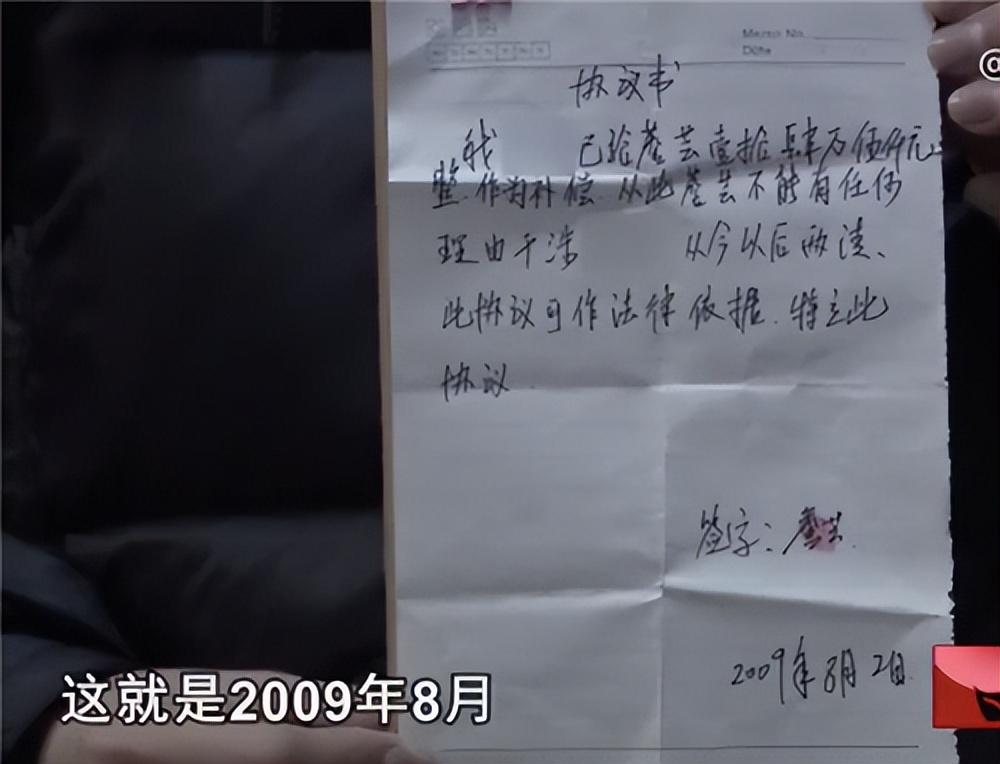 Memo No.
Date
@
协议书
我 已给彦芸壹拾肆万伍仟元
整.作为补偿.从此彦芸不能有任何
理由干涉 从今以后两清、
此协议可作法律依据.特立此
协议.
签字:彦芸.
2009年8月2日
这就是2009年8月